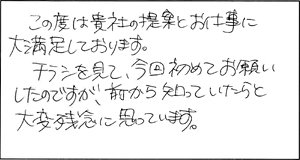 この度は貴社の提案とお仕事に
大満足しております。
チラシを見て、今回初めてお願い
したのですが、前から知っていたらと
大変残念に思っています。